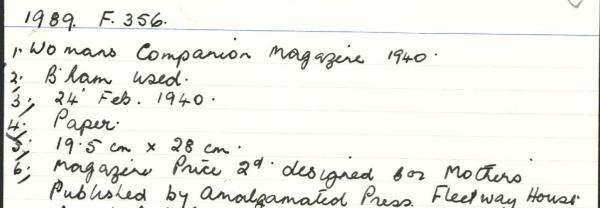 1989. F. 356.
1. Womans Companion Magazine 1940.
2. B'ham used.
3. 24 Feb. 1940.
4. Paper.
5. 19.5 cm x 28 cm.
6. Magazine Price 2d. designed for Mothers
Published by Amalgamated Press. Fleetway House